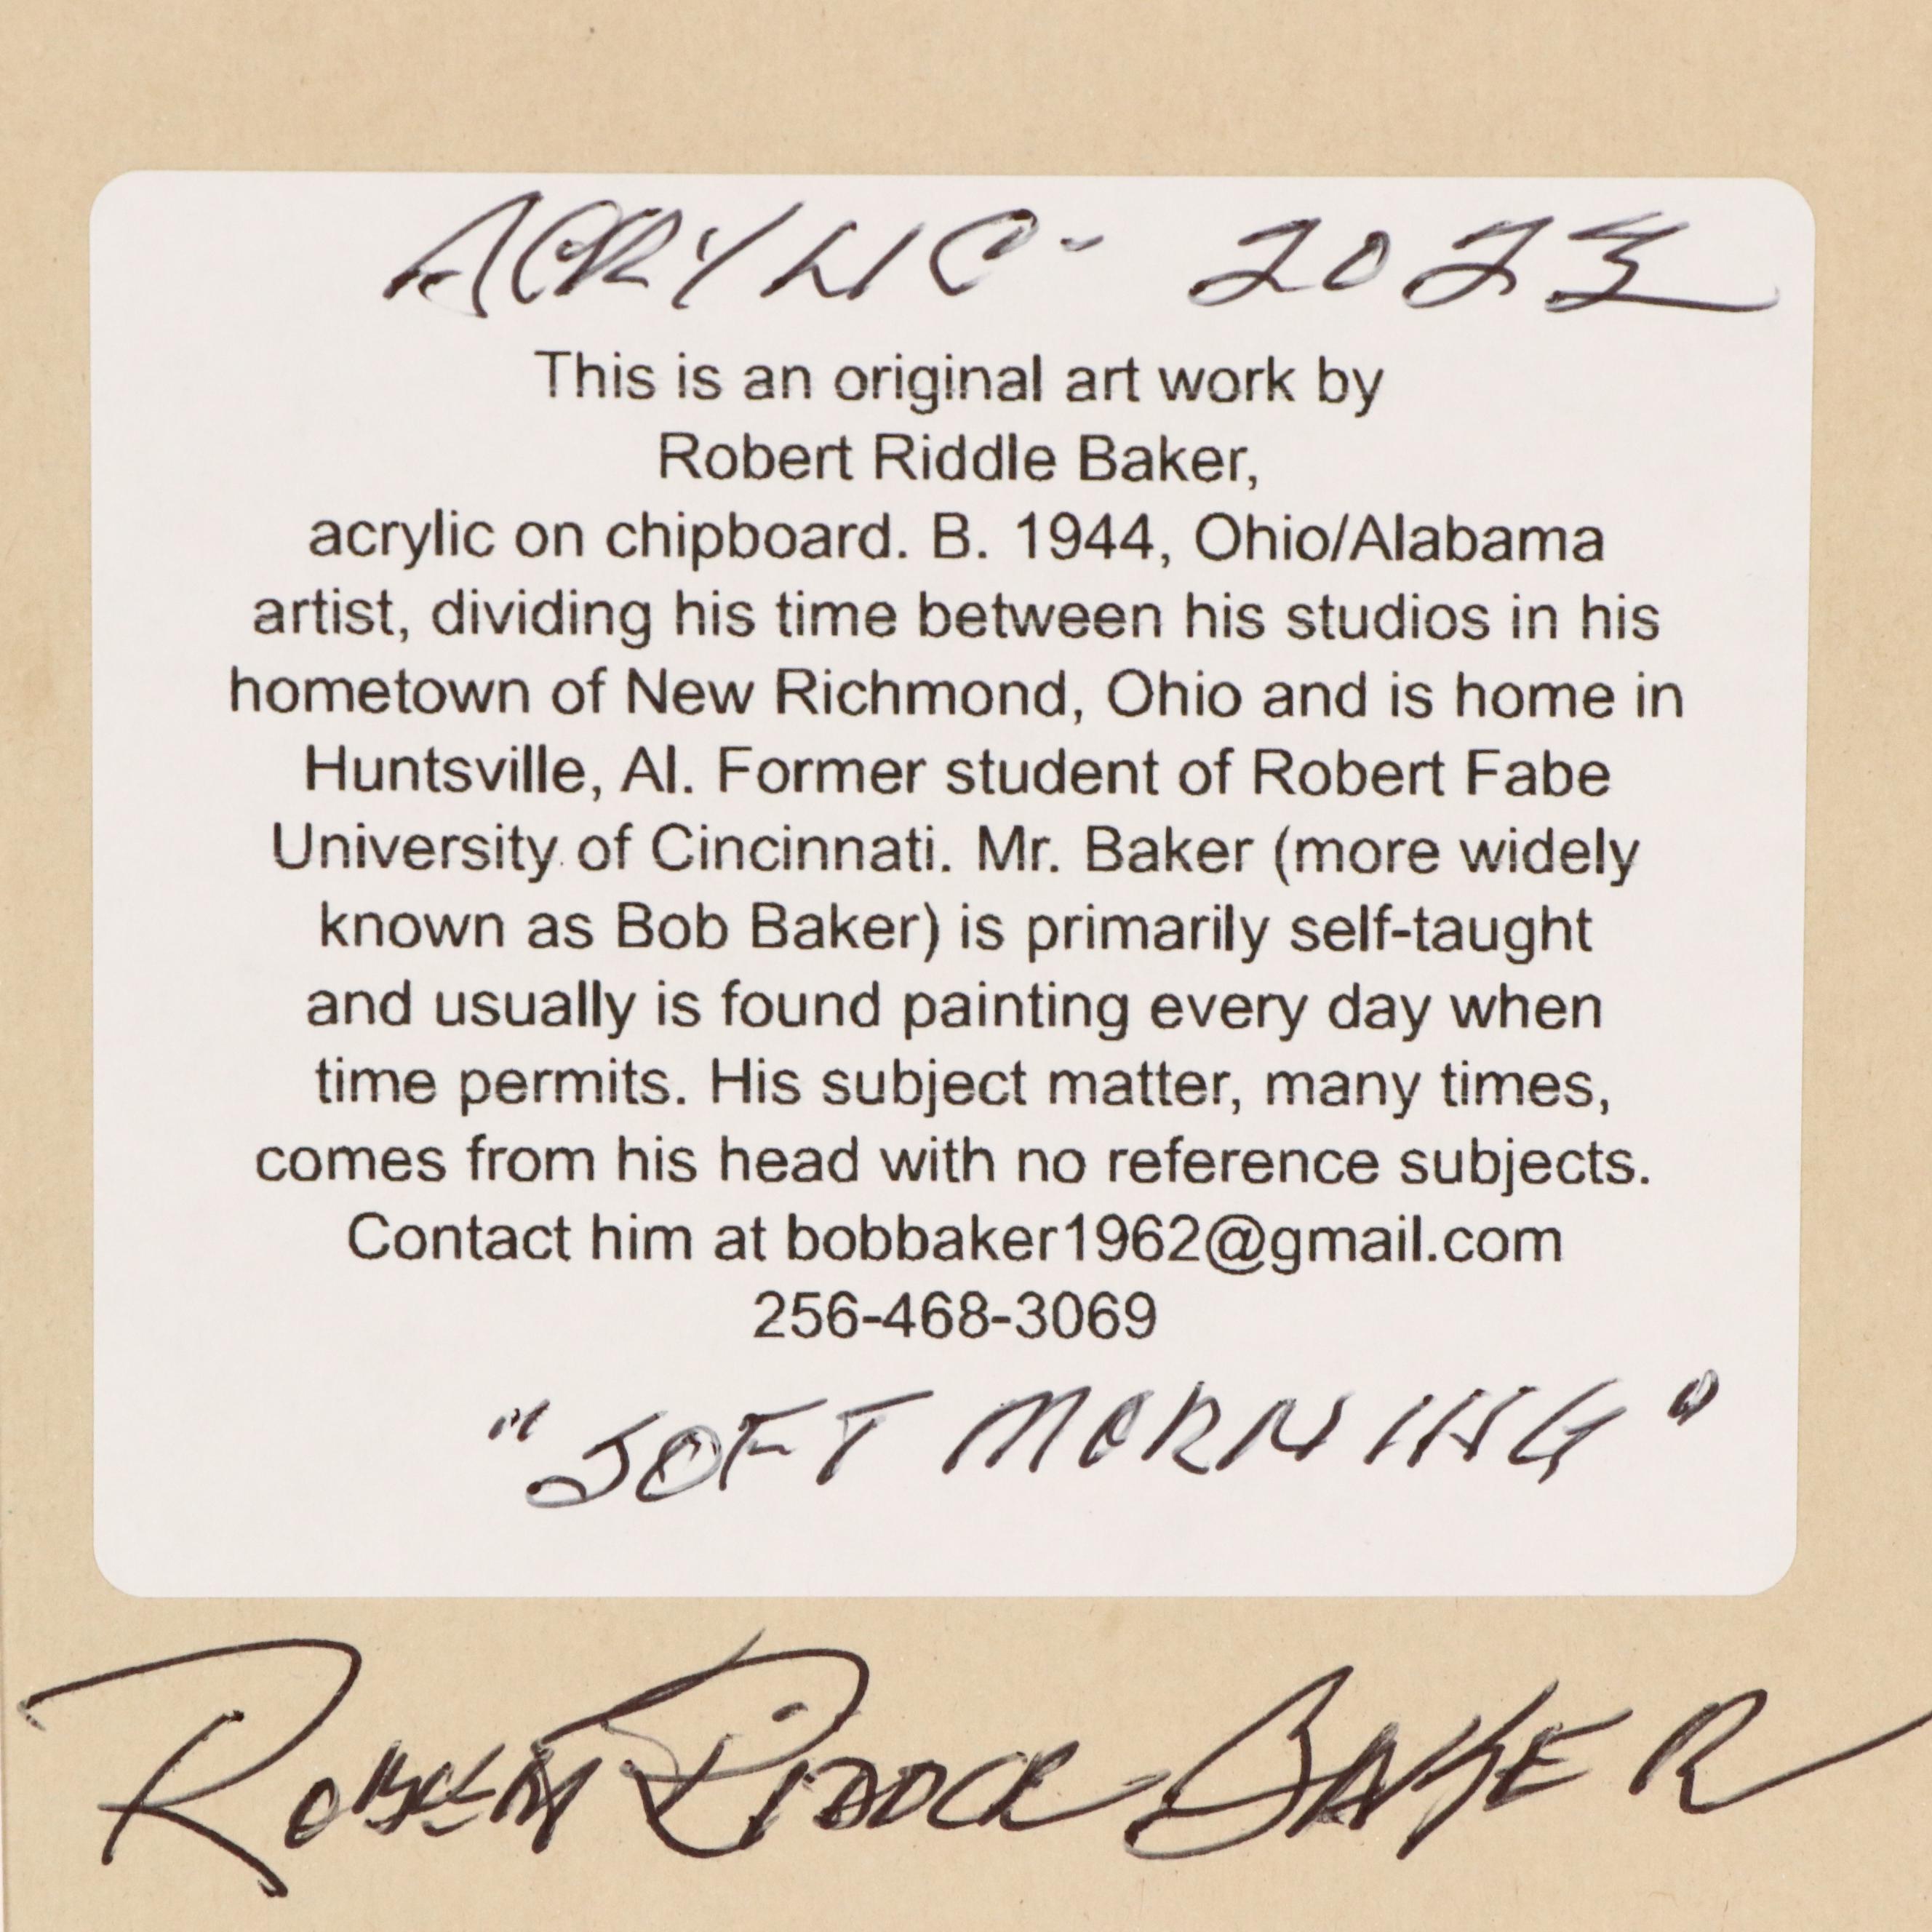 ACRYLIC - 2023
This is an original art work by
Robert Riddle Baker,
acrylic on chipboard. B. 1944, Ohio/Alabama
artist, dividing his time between his studios in his
hometown of New Richmond, Ohio and is home in
Huntsville, Al. Former student of Robert Fabe
University of Cincinnati. Mr. Baker (more widely
known as Bob Baker) is primarily self-taught
and usually is found painting every day when
time permits. His subject matter, many times,
comes from his head with no reference subjects.
Contact him at bobbaker1962@gmail.com
256-468-3069
"SOFT MORNING"
ROBERT RIDDLE BAKER